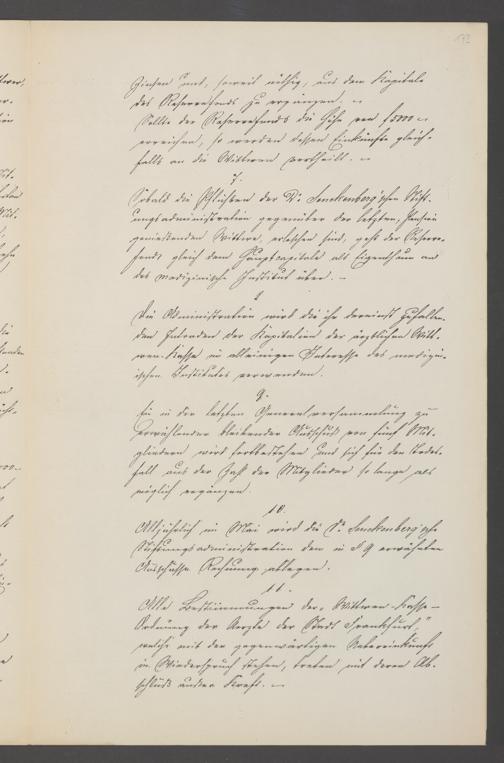 173
Zinsen und, soweit nöthig, aus dem Kapitale
des Reservefonds zu ergänzen. —
Sollte der Reservefonds die Höhe von f 5000 —
erreichen, so werden dessen Einkünfte gleich-
falls an die Wittwen vertheilt. —
7.
Sobald die Pflichten der Dr. Senckenberg'schen Stift-
ungsadministration gegenüber der letzten, Pension
genießenden Wittwe, erloschen sind, geht der Reserve-
fonds gleich dem Hauptcapitale als Eigenthum an
das medizinische Institut über. —
8
Die Administration wird die ihr dereinst zufallen-
den Intraden der Kapitalien der ärztlichen Witt-
wen-Kasse im alleinigen Interesse des medizin-
ischen Institutes verwenden.
9.
Ein in der letzten Generalversammlung zu
erwählender bleibender Ausschuß von fünf Mit-
gliedern wird fortbestehen und sich für den Todes-
fall aus der Zahl der Mitglieder so lange als
möglich ergänzen.
10.
Alljährlich im Mai wird die Dr. Senckenberg'sche
Stiftungsadministration dem in § 9 erwähnten
Ausschusse Rechnung ablegen.
11.
Alle Bestimmungen der „Wittwen-Kasse-
Ordnung der Aerzte der Stadt Frankfurt,"
welche mit der gegenwärtigen Uebereinkunft
in Widerspruch stehen, treten mit deren Ab-
schluß außer Kraft. —